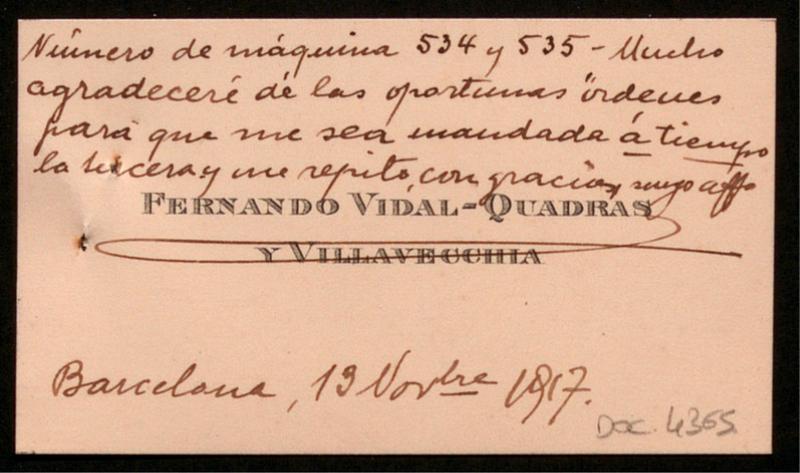 Número de máquina 534 y 535 - Mucho
agradeceré dé las oportunas órdenes
para que me sea mandada á tiempo
la tercera y me repito, con gracias, suyo affo
FERNANDO VIDAL-QUADRAS
Y VILLAVECCHIA
Barcelona, 13 Novbre 1917.
DOC. 4365